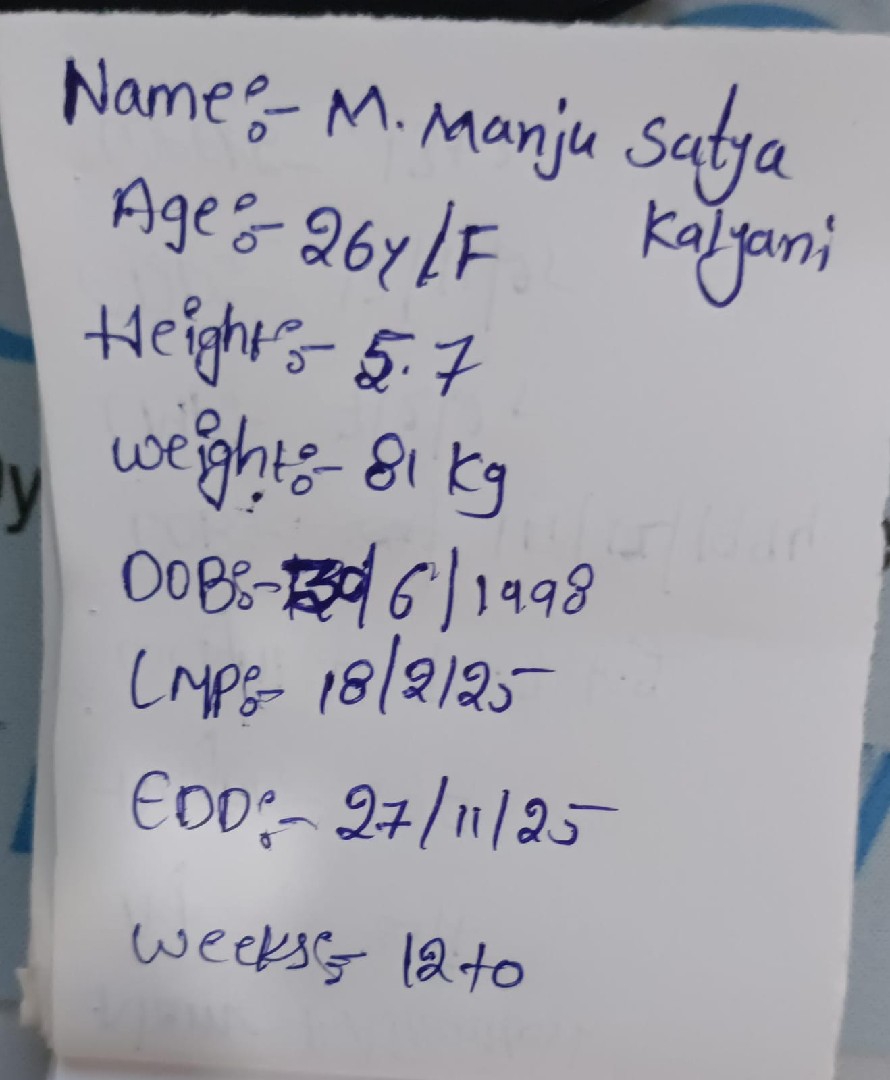 Name:- M. Manju Satya
Kalyani
Age:- 26y/F
Height:- 5.7
weight:- 81 kg
DOB:- /6/1998
LMP:- 18/2/25
EDD:- 27/11/25
weeks:- 12+0